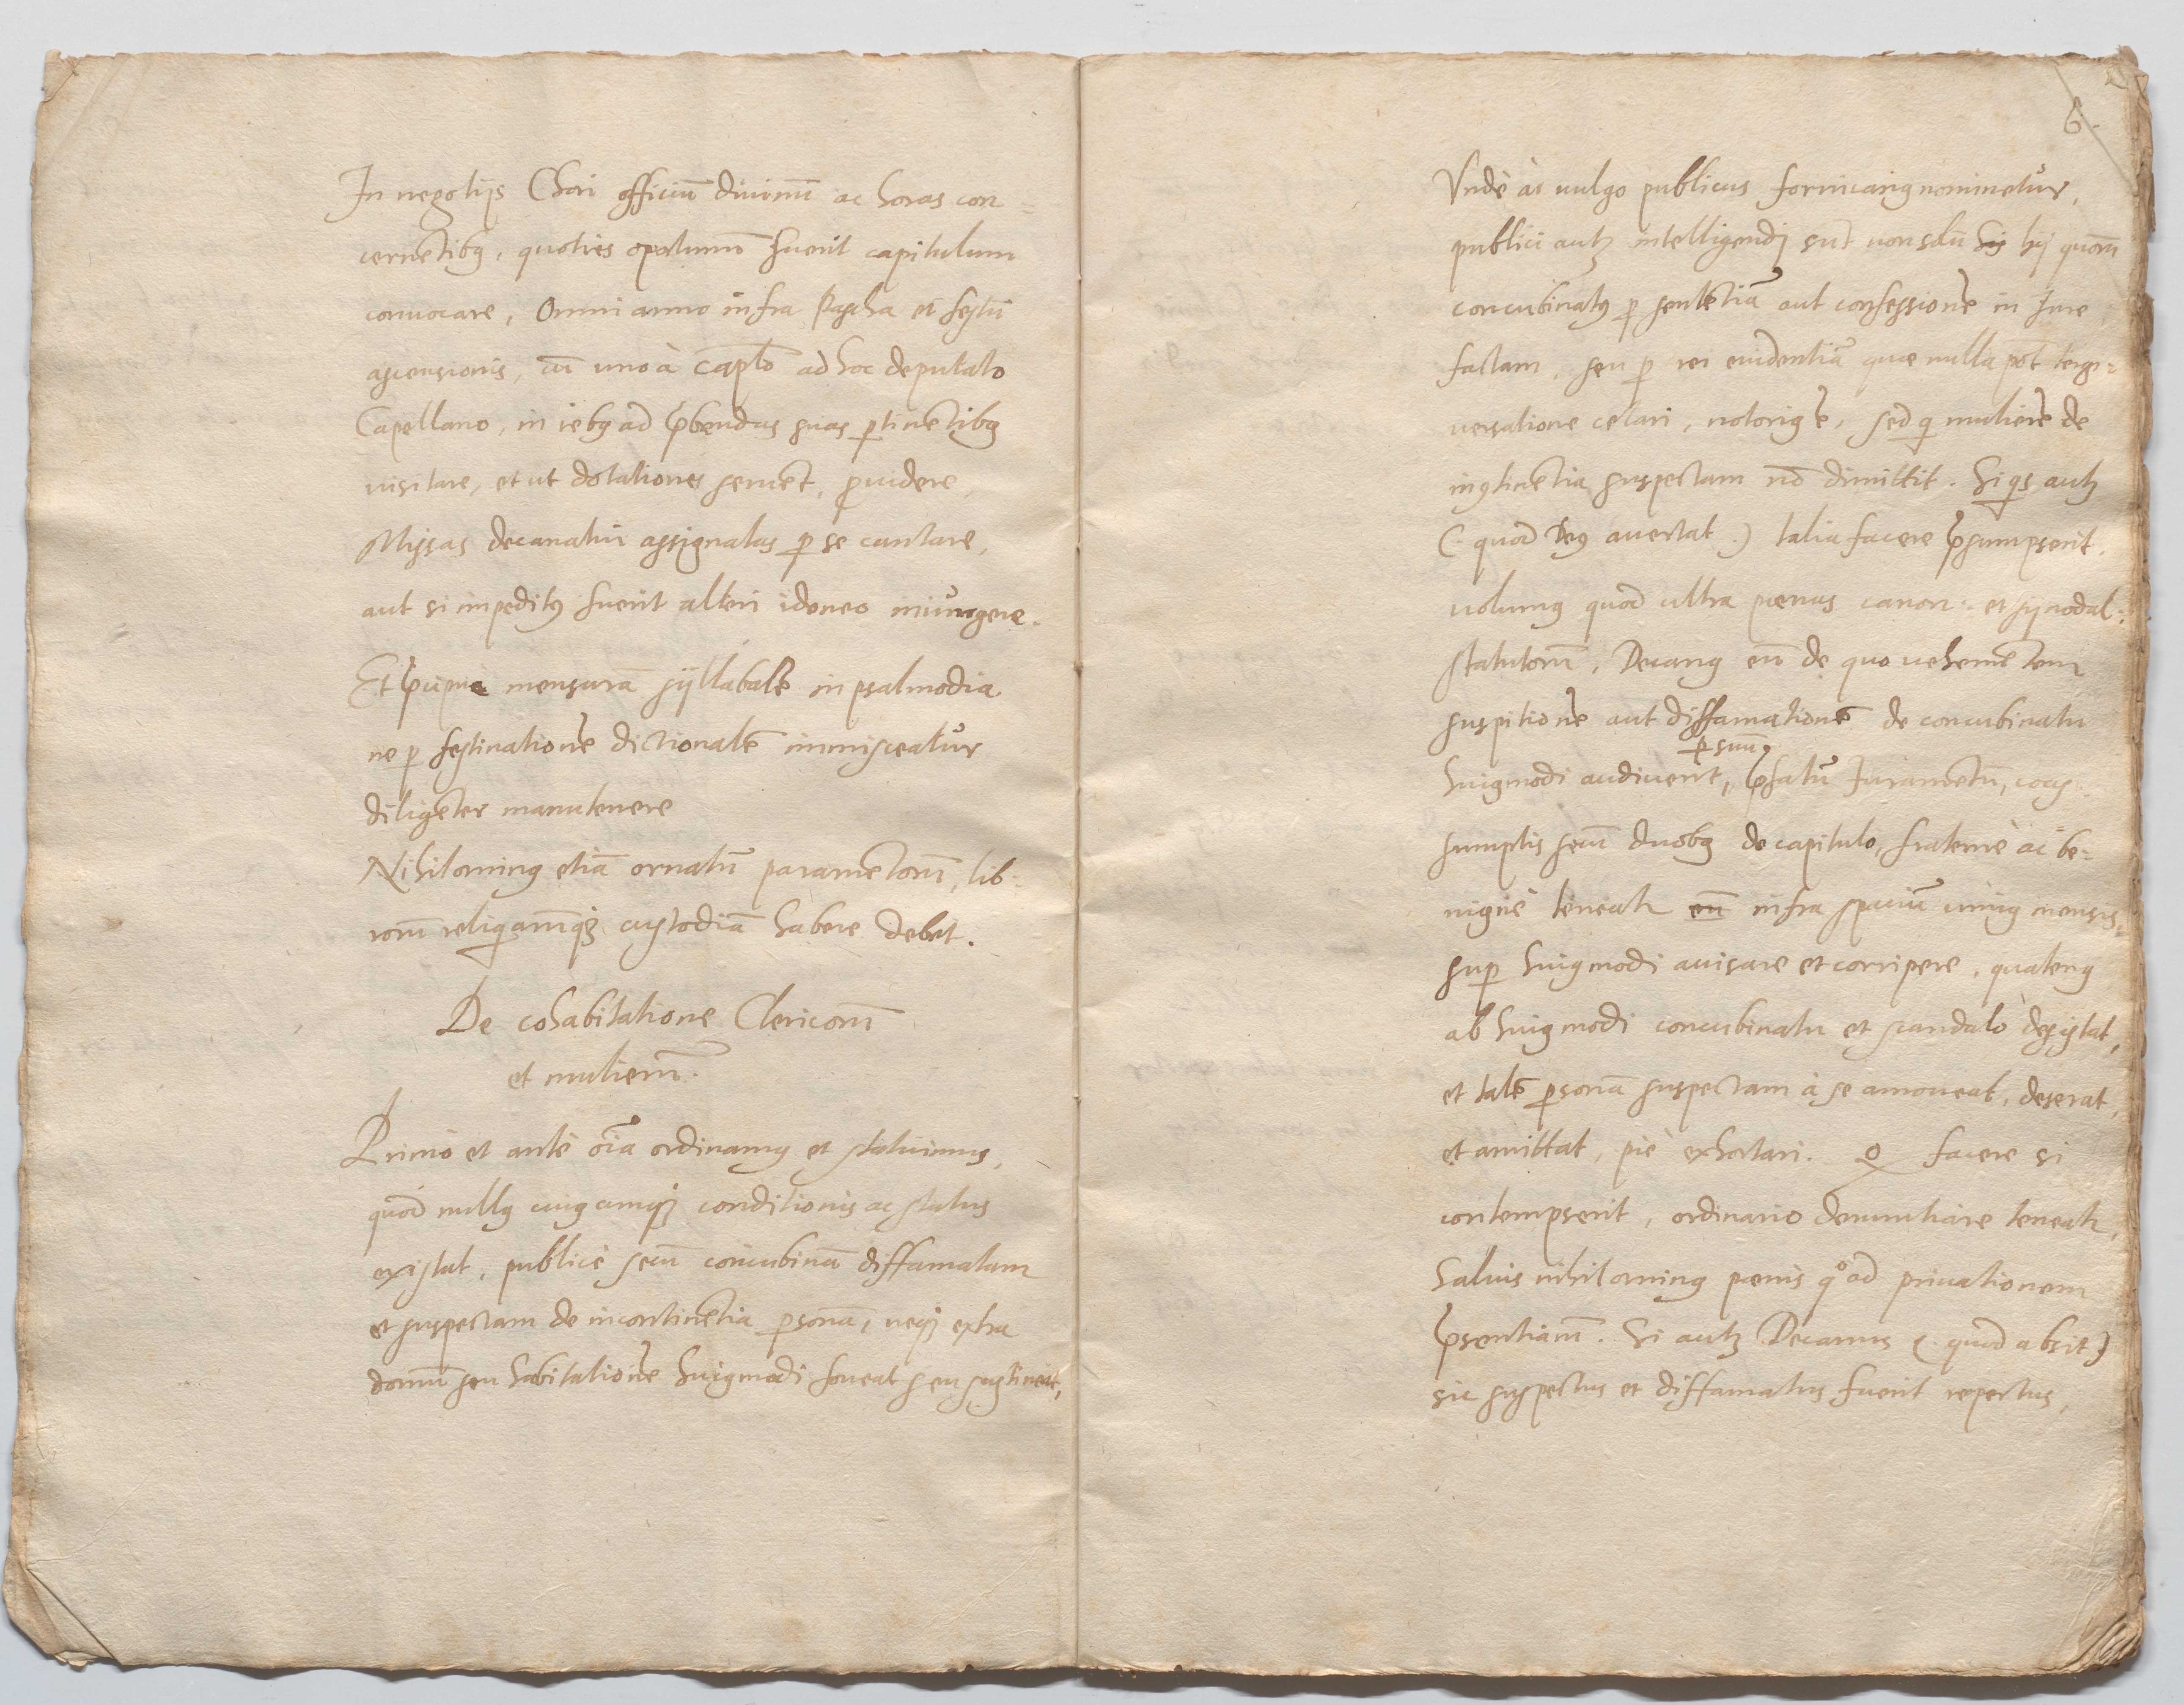 In negotijs Chori officiū diuinū ac horas con=
cernētibꝯ, quoties oportunū fuerit capitulum
conuocare, Omni anno infra Pascha et festū
ascensionis, cū uno à capło ad hoc deputato
Capellano, in rebꝯ ad p̄bendas suas ꝑtinētibꝯ
uisitare, et ut dotationes seruēt, ꝓuidere,
Missas decanatui assignatas ꝑ se cantare,
aut si impeditꝯ fuerit alteri idoneo iniungere.
Et mensurā syllabalē in psalmodia
ne ꝑ festinationē dictionalē immisceatur
diligēter manutenere
Nihilominꝯ etiā ornatū paramētorū, lib=
rorū reliquarūqꝫ custodiā habere debet.
De cohabitatione Clericorū
et mulierū.
Primo et ante oīa ordinamꝯ et statuimus,
quod nullꝯ cuiꝯcunqꝫ conditionis ac status
existat, publicè secū concubinā diffamatam
et suspectam de incontinētia ꝑsonā, neqꝫ extra
domū seu habitationē huiꝯmodi foueat seu sustineat,
6.
Vndè àc uulgo publicus fornicariꝯ nominetur,
publici autꝫ intelligendi sūt non solū his hij quorū
concubinatꝯ ꝑ sentētiā aut confessionē in Iure
factam, seu ꝑ rei euidentiā que nulla pōt tergi=
uersatione celari, notoriꝯ ē, sed qi mulierē de
incōtinētia suspectam nō dimittit. Si qis autꝫ
(quod Deꝯ auertat) talia facere p̄sumpserit,
volumꝯ quod ultra penas canon: et synodal:
statutorū, Decanꝯ eū de quo uehemētem
suspitionē aut diffamationē de concubinatu
ꝑ suū
huiꝯmodi audiuerit, p̄fatū Iuramētū, vocꝯ
sumptis secū duobꝯ de capitulo, fraternè ac be=
nignè teneatr eū infra spaciū uniꝯ mensis,
suꝑ huiꝯmodi auisare et corripere, quatenꝯ
ab huiꝯmodi concubinatu et scandalo desistat,
et talē ꝑsonā suspectam à se amoueat, deserat,
et amittat, piè exhortari. Q facere si
contempserit, ordinario denuntiare teneatr,
Saluis nihilominꝯ penis qo ad priuationem
p̄sentiarū. Si autꝫ Decanus (quod absit)
sic suspectus et diffamatus fuerit repertus,